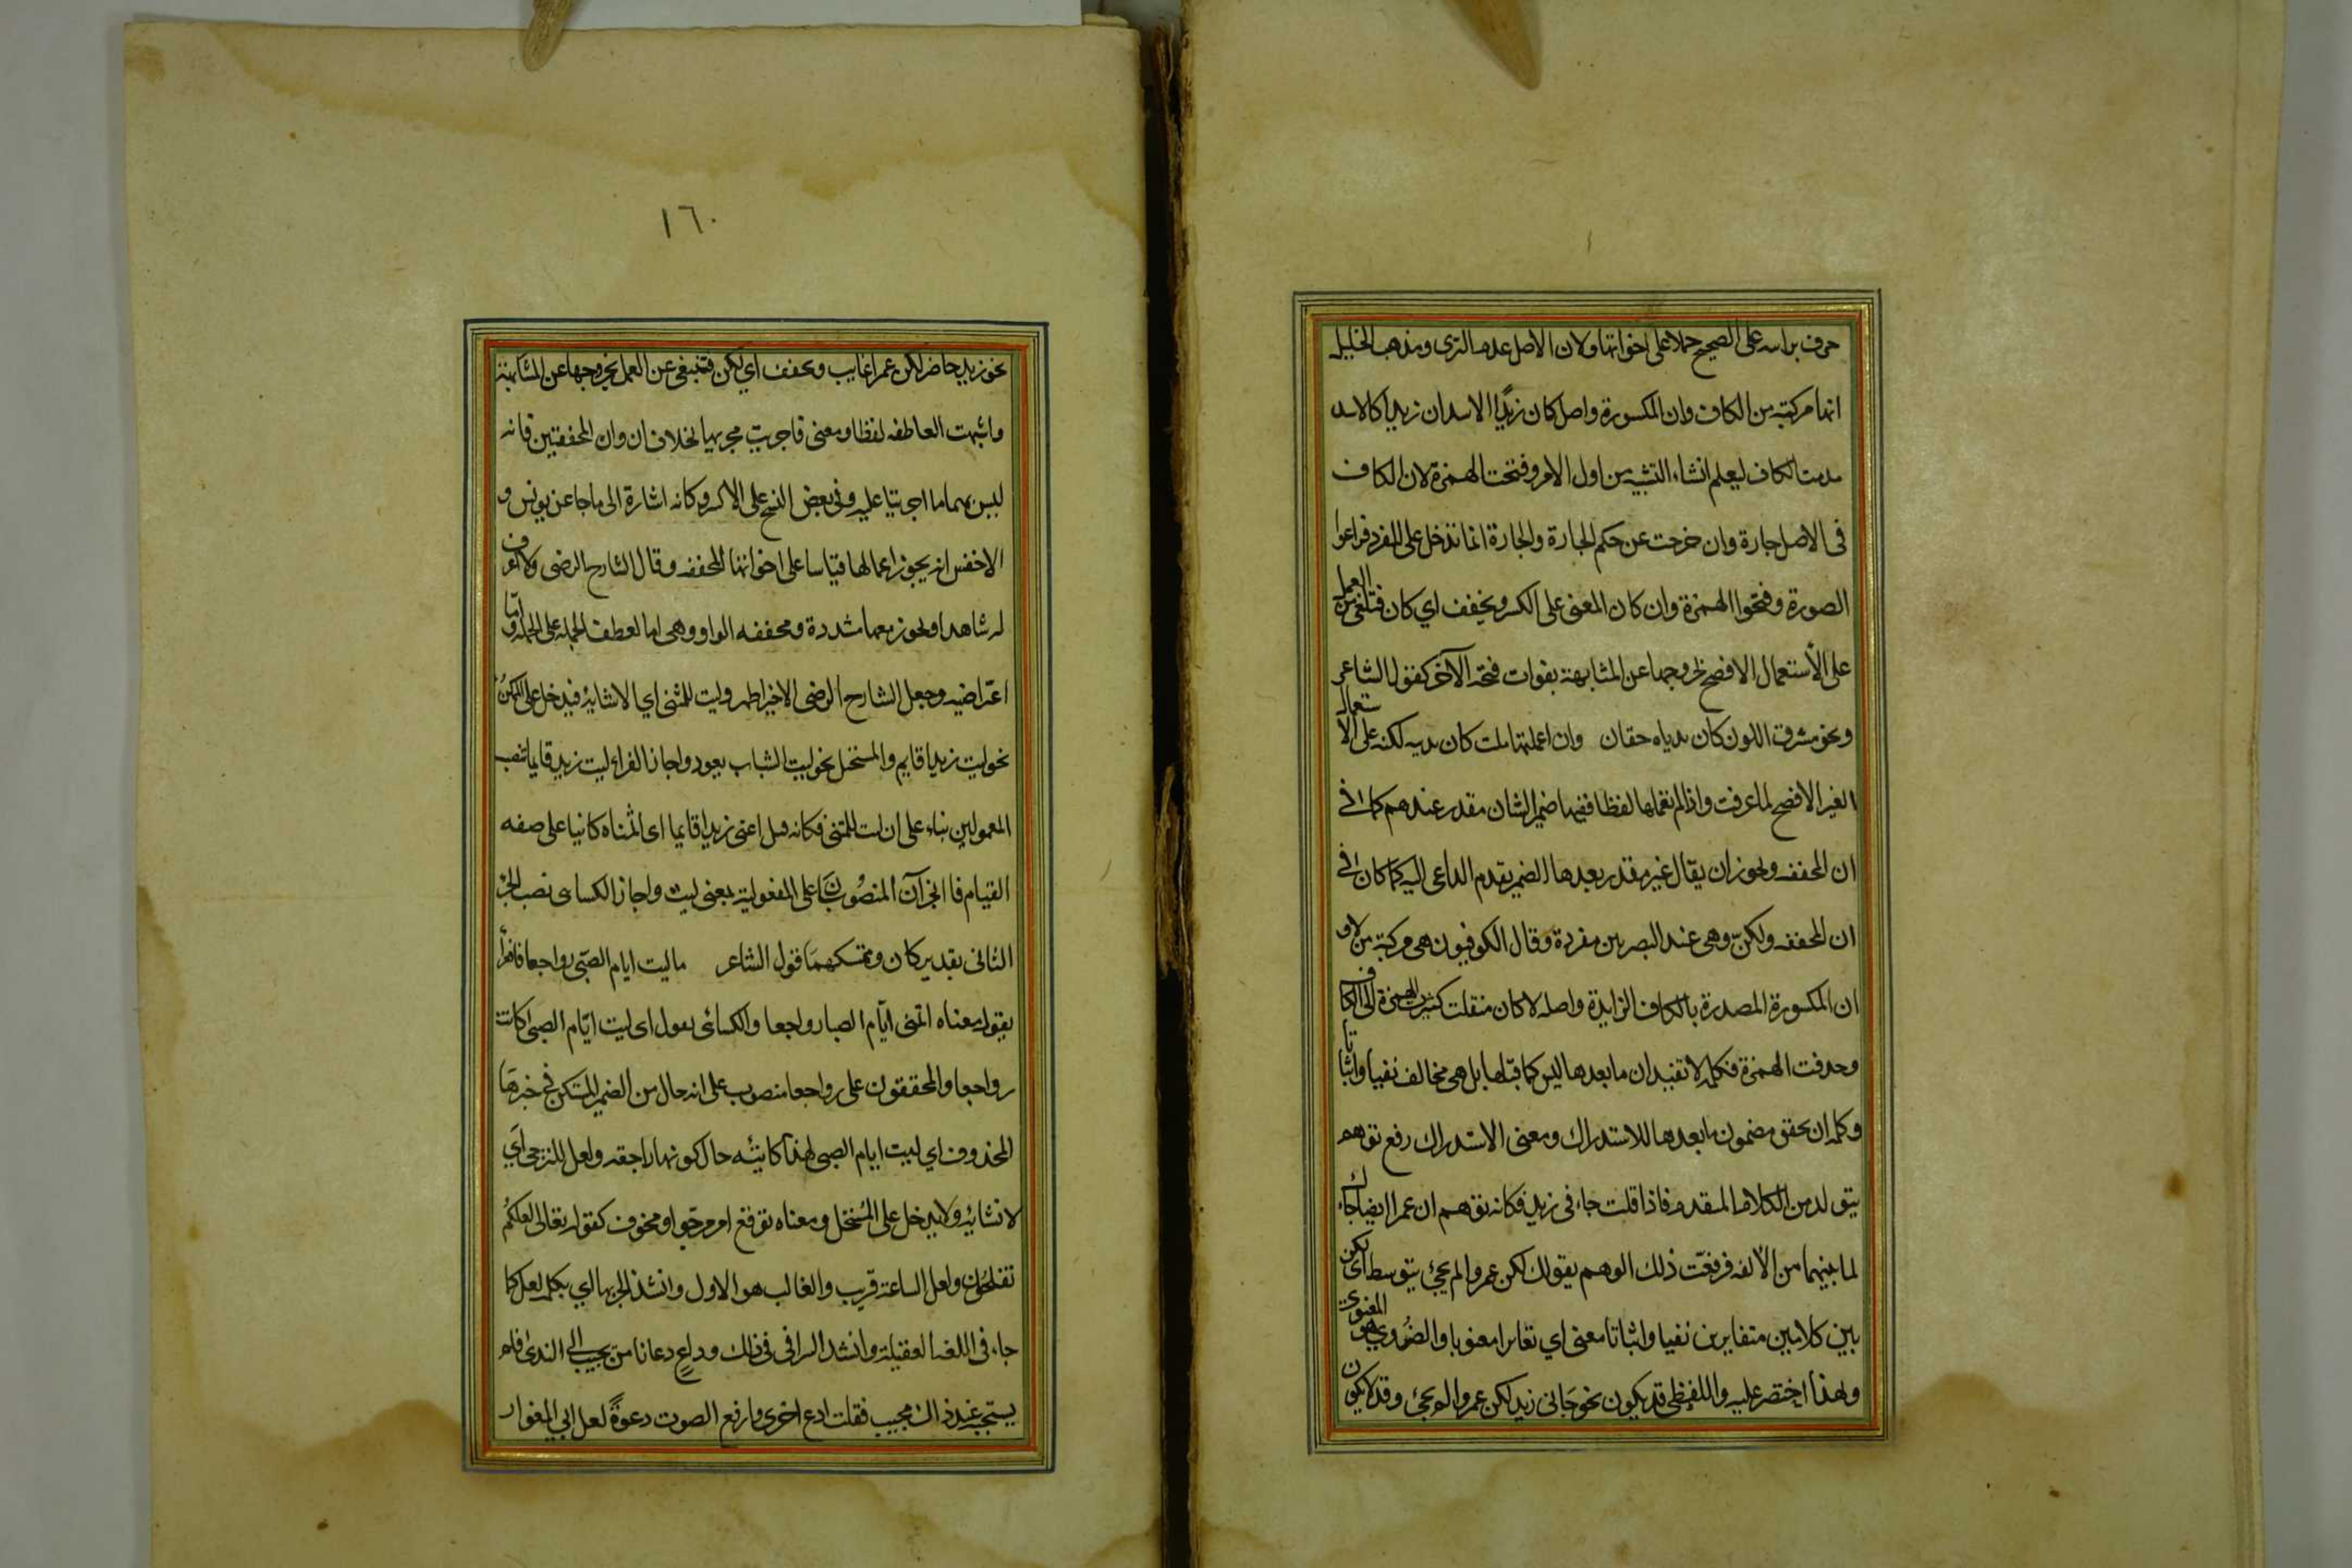 حرف براسه على الصحيح حملا على اخواتها ولان الاصل عدم التركيب ومذهب الخليل
انها مركبة من الكاف وان المكسورة واصل كان زيدًا الاسد ان زيدا كالاسد
قدمت الكاف ليعلم انشاء التشبيه من اول الامر وفتحت الهمزة لان الكاف
فى الاصل جارة وان خرجت عن حكم الجارة والجارة انما تدخل على المفرد فراعوا
الصورة وفتحوا الهمزة وان كان المعنى على الكسر ويخفف اي كان فتلغى عن العمل
على الأستعمال الافصح لخروجها عن المشابهة بفوات فتحة الآخر كقول الشاعر
ونحر مشرق اللون كان ثدياه حقان وان اعملتها قلت كان ثدييه لكنه على الاستعمال
الغير الافصح لما عرفت واذا لم تعملها لفظا ففيها ضمير الشان مقدر عندهم كما فى
ان المخففه ويجوز ان يقال غير مقدر بعدها الضمير لعدم الداعى اليه كما كان فى
ان المخففه ولكنّ وهى عند البصريين مفردة وقال الكوفيون هى مركبة من لا و
ان المكسورة المصدرة بالكاف الزايدة واصله لاكان فنقلت كسرة الهمزة الى الكاف
وحذفت الهمزة فكلمه لا تفيد ان ما بعدها ليس كما قبلها بل هى مخالف نفيا واثباتا
وكلمه ان تحقق مضمون ما بعدها للاستدراك ومعنى الاستدراك رفع توهم
يتولد من الكلام المتقدم فاذا قلت جاءنى زيد فكانه توهم ان عمرا ايضا جاءك
لما بينهما من الألفه فرفعت ذلك الوهم بقولك لكن عمروا لم يجئ يتوسط اى لكن
بين كلامين متغايرين نفيا واثباتا معنى اي تغايرا معنويا والضروري هو المعنوى
ولهذا اختصر عليه واللفظى قد يكون نحو جانى زيد لكن عمروا لم يجئ وقد لا يكون
١٦٠
نحو زيد حاضر لكن عمرا غايب وتخفف اي لكن فتلغى عن العمل لخروجها عن المشابهة
واشبهت العاطفه لفظا ومعنى فاجريت مجريها بخلاف ان وان المخففتين فانه
ليس بهما ما اجريتا عليه وفى بعض النسخ على الاكثر وكانه اشارة الى ما جا عن يونس و
الاخفش انه يجوز اعمالها قياسا على اخواتها المخففه وقال الشارح الرضى ولا اعرف
له شاهدا ويجوز معها مشددة ومخففه الواو وهى اما لعطف الجمله على الجمله وأمّا
اعتراضيه وجعل الشارح الرضى الاخير اظهر وليت للتمنى اي لانشايه فيدخل على الممكن
نحو ليت زيدا قايم والمستحيل نحو ليت الشباب يعود واجاز الفراء ليت زيدا قايما بنصب
المعمولين بناء على ان ليت للتمنى فكانه قيل اتمنى زيدا قايما اى اتمناه كاينا على صفه
القيام فالجزآن المنصُوبَان على المفعولية بمعنى ليت واجاز الكساى نصب الجزء
الثانى بتقدير كان وتمسكهما قول الشاعر ياليت ايام الصّبى رواجعا فالفرأ
يقول معناه اتمنى ايّام الصبا رواجعا والكسائى يقول اى ليت ايّام الصبى كانت
رواجعا والمحققون على رواجعا منصوب على انه حال من الضمير المستكن فى خبرها
المحذوف اي ليت ايام الصبى لهذا كاينه حال كونها راجعه ولعل للترجى اَي
لانشايه ولا يدخل على المستحيل ومعناه توقع امر مرجو او مخوف كقوله تعالى لعلكُم
تفلحُون ولعل الساعة قريب والغالب هو الاول وانشد الجر بها اي بكلمه لعل كما
جاء فى اللغه العقيلية وانشد السيرافى فى ذلك وداعٍ دعانا من يجيب الى الندى فلم
يستجبه عند ذاك مجيب فقلت ادع اخرى وارفع الصوت دعوةً لعل ابي المغوار